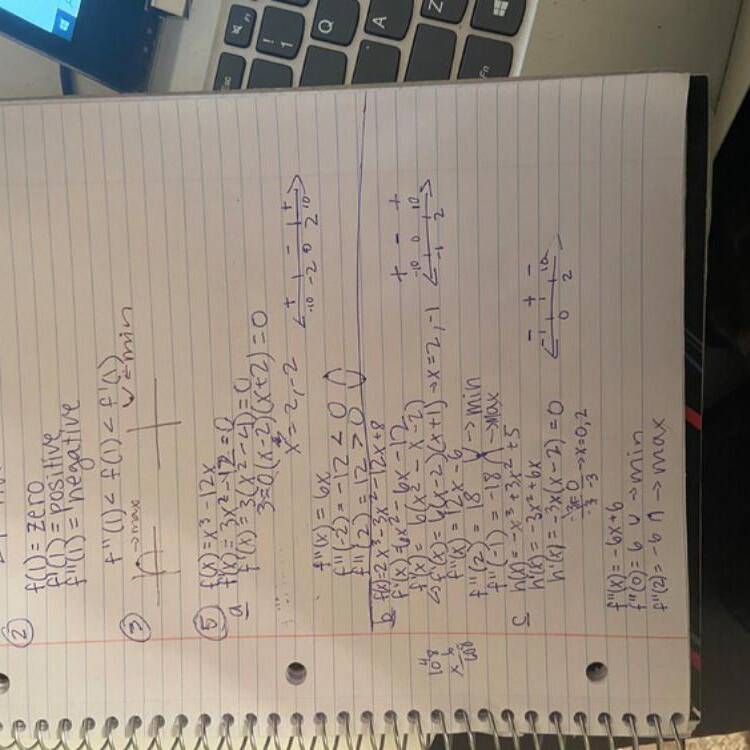 ②
f(1) = zero
f'(1) = positive
f''(1) = negative
f''(1) < f(1) < f'(1)
③ → max
= min
⑤ f(x) = x³ - 12x
a f'(x) = 3x² - 12 = 0
f'(x) = 3(x² - 4) = 0
3=0 (x-2)(x+2) = 0
x = 2, -2
+ - +
-10 -2 0 2 10
f''(x) = 6x
f''(-2) = -12 < 0
f''(2) = 12 > 0
b f(x) = 2x³ - 3x² - 12x + 8
f'(x) = 6x² - 6x - 12
f'(x) = 6(x² - x - 2)
f'(x) = 6(x-2)(x+1) → x = 2, -1
+ - +
-10 0 10
-1 2
f''(x) = 12x - 6
f''(2) = 18 → min
f''(-1) = -18 → max
c h(x) = -x³ + 3x² + 5
h'(x) = -3x² + 6x
h'(x) = -3x(x-2) = 0
→ x = 0, 2
- + -
-1 1 10
0 2
f''(x) = -6x + 6
f''(0) = 6 ∪ → min
f''(2) = -6 ∩ → max
108
x 6
Esc
Fn
!
1
Q
A
Z
Fn